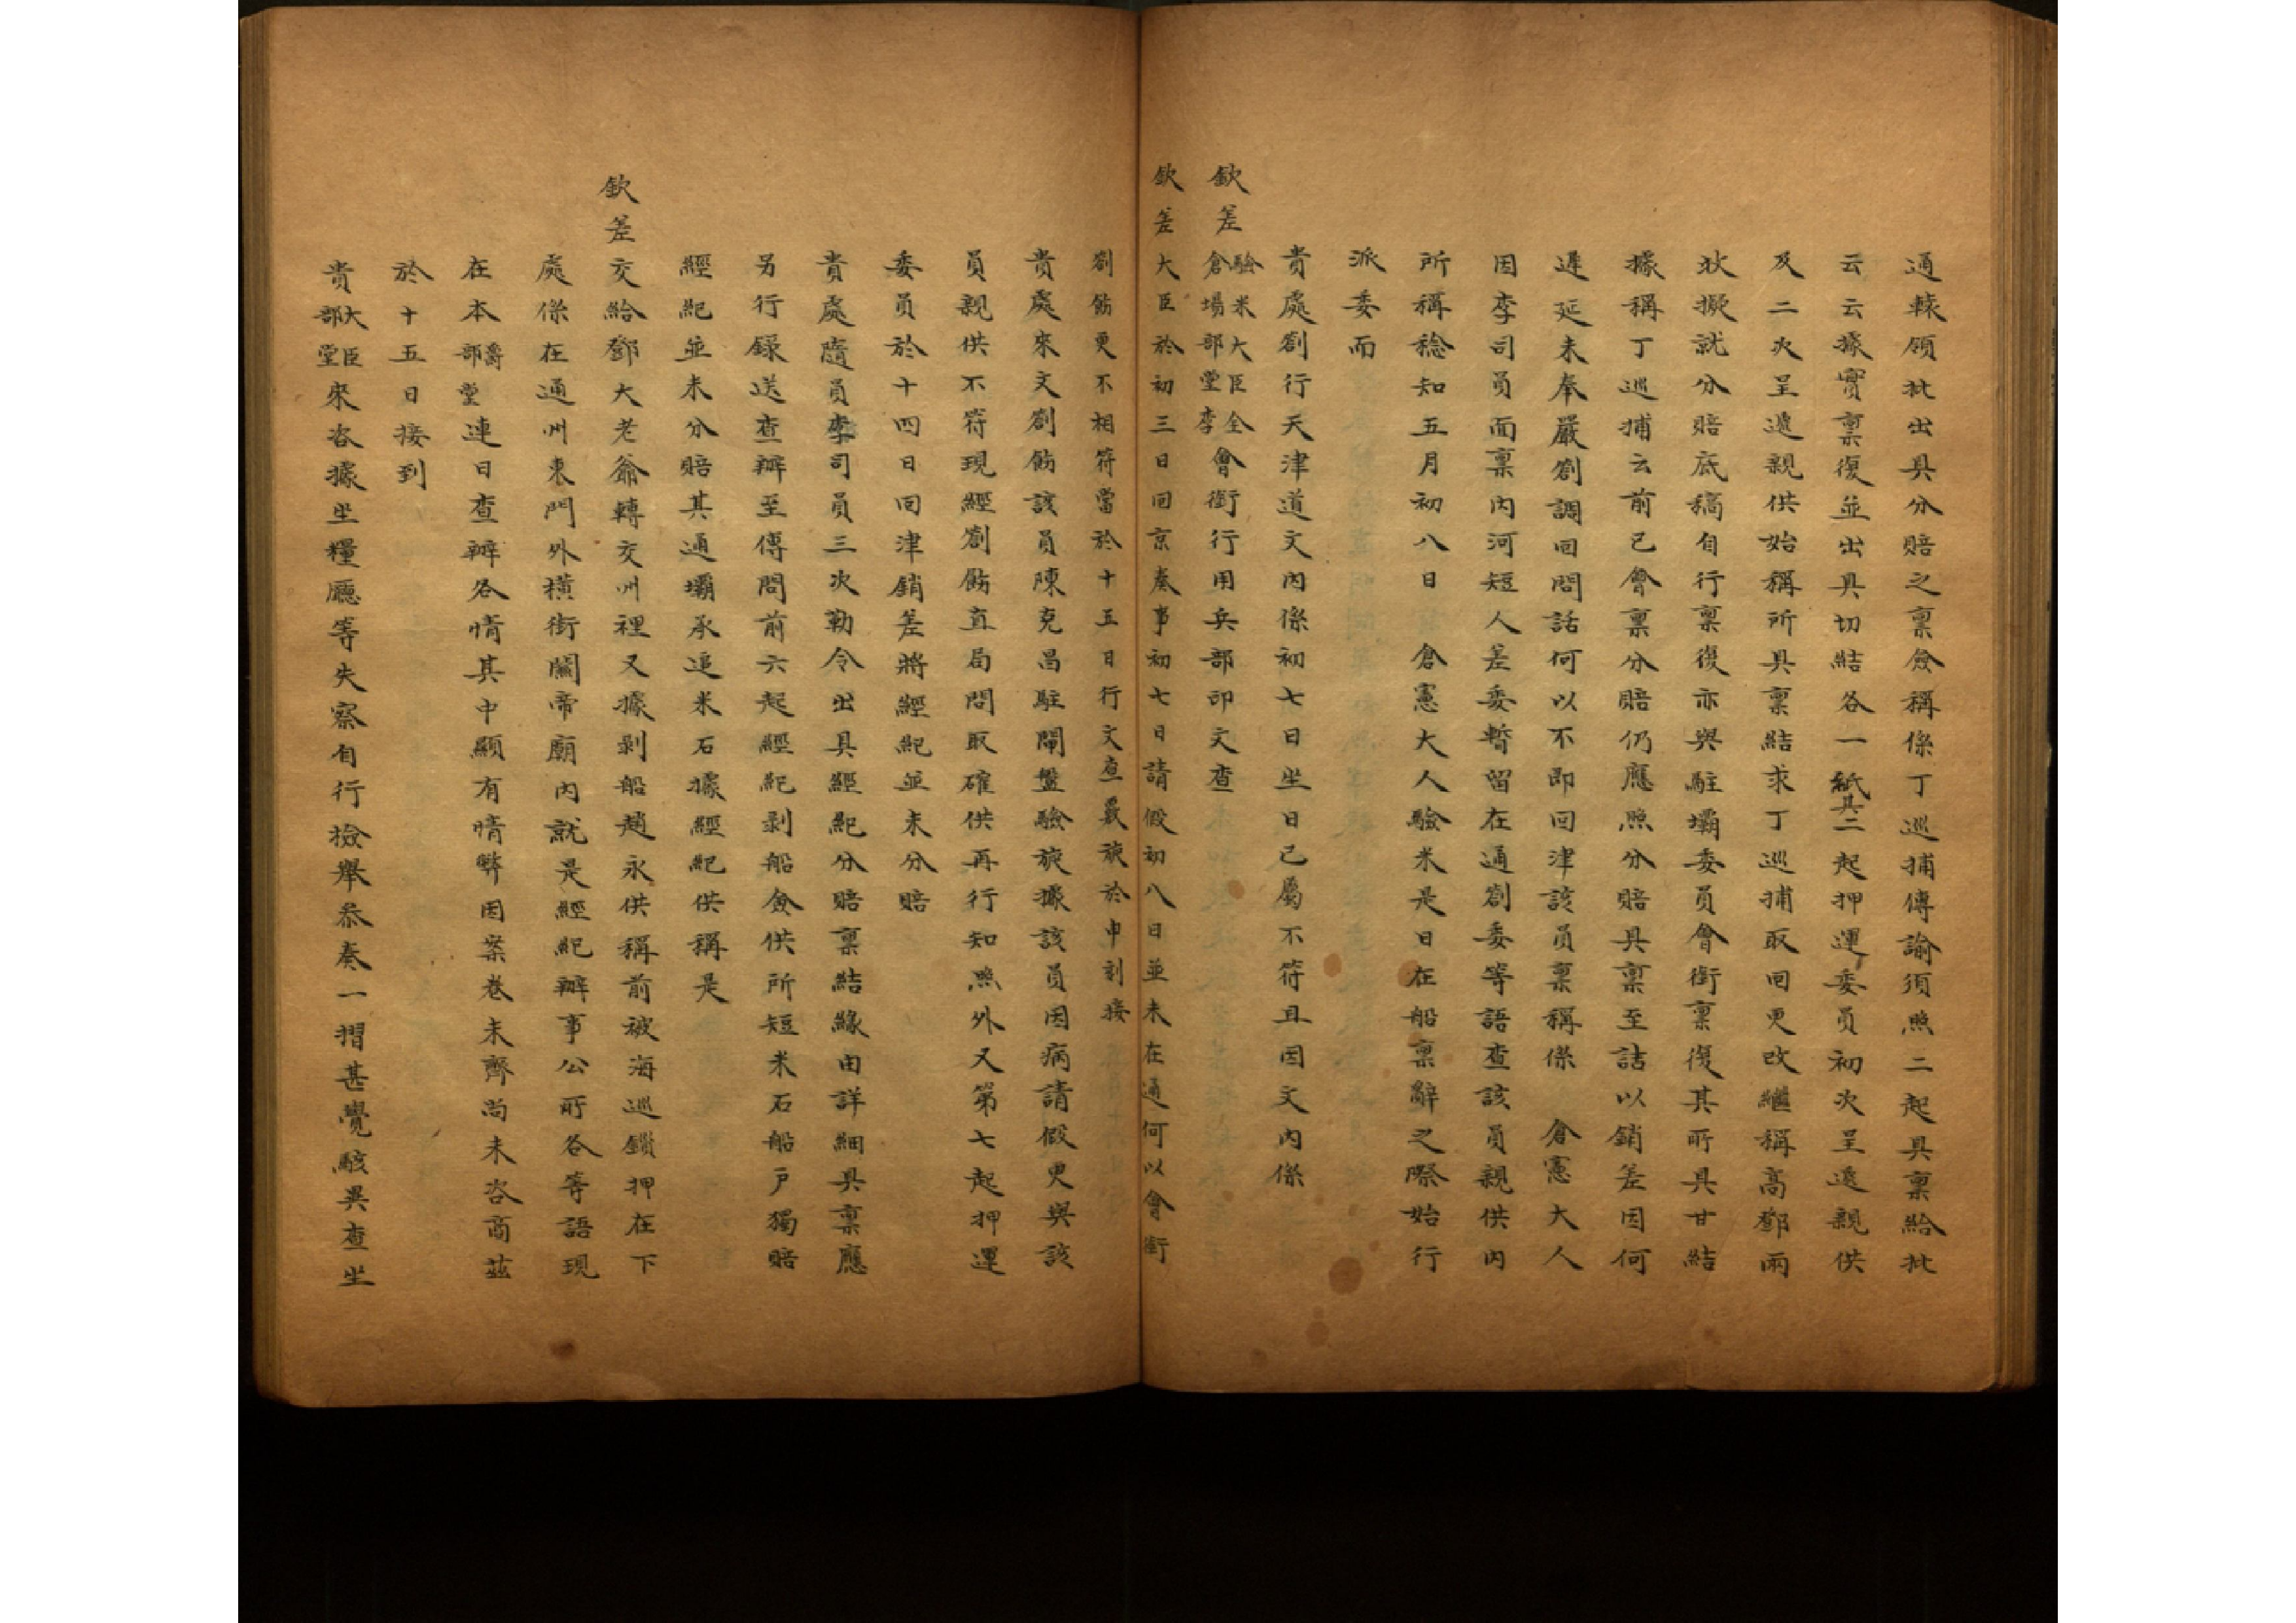 通轅領批出具分賠之稟僉稱係丁巡捕傳諭須照二起具稟給批
云云據實稟復並出具切結各一紙其二起押運委員初次呈遞親供
及二次呈遞親供始稱所具稟結求丁巡捕取回更改繼稱高鄧兩
狀擬就分賠底稿自行稟復亦與駐壩委員會銜稟復其所具甘結
據稱丁巡捕云前已會稟分賠仍應照分賠具稟至詰以銷差因何
遲延未奉嚴劄調回問話何以不即回津該員稟稱係 倉憲大人
因李司員面稟內河短人差委暫留在通劄委等語查該員親供內
所稱稔知五月初八日 倉憲大人驗米是日在船稟辭之際始行
派委而
貴處劄行天津道文內係初七日坐日已屬不符且因文內係
欽差驗米大臣倉場部堂全李會銜行用兵部印文查
欽差大臣於初三日回京奏事初七日請假初八日並未在通何以會銜
劄飭更不相符當於十五日行文查覈旋於申刻接
貴處來文劄飭該員陳克昌駐閘盤驗旋據該員因病請假更與該
員親供不符現經劄飭直局問取確供再行知照外又第七起押運
委員於十四日回津銷差將經紀並未分賠
貴處隨員李司員三次勒令出具經紀分賠稟結緣由詳細具稟應
另行錄送查辦至傳問前六起經紀剥船僉供所短米石船戶獨賠
經紀並未分賠其通壩承追米石據經紀供稱是
欽差交給鄧大老爺轉交州裡又據剥船趙永供稱前被海巡鎖押在下
處係在通州東門外橫街關帝廟內就是經紀辦事公所各等語現
在本爵部堂連日查辦各情其中顯有情弊因案卷未齊尚未咨商茲
於十五日接到
貴大臣部堂來咨據坐糧廳等失察自行檢舉叅奏一摺甚覺駭異查坐